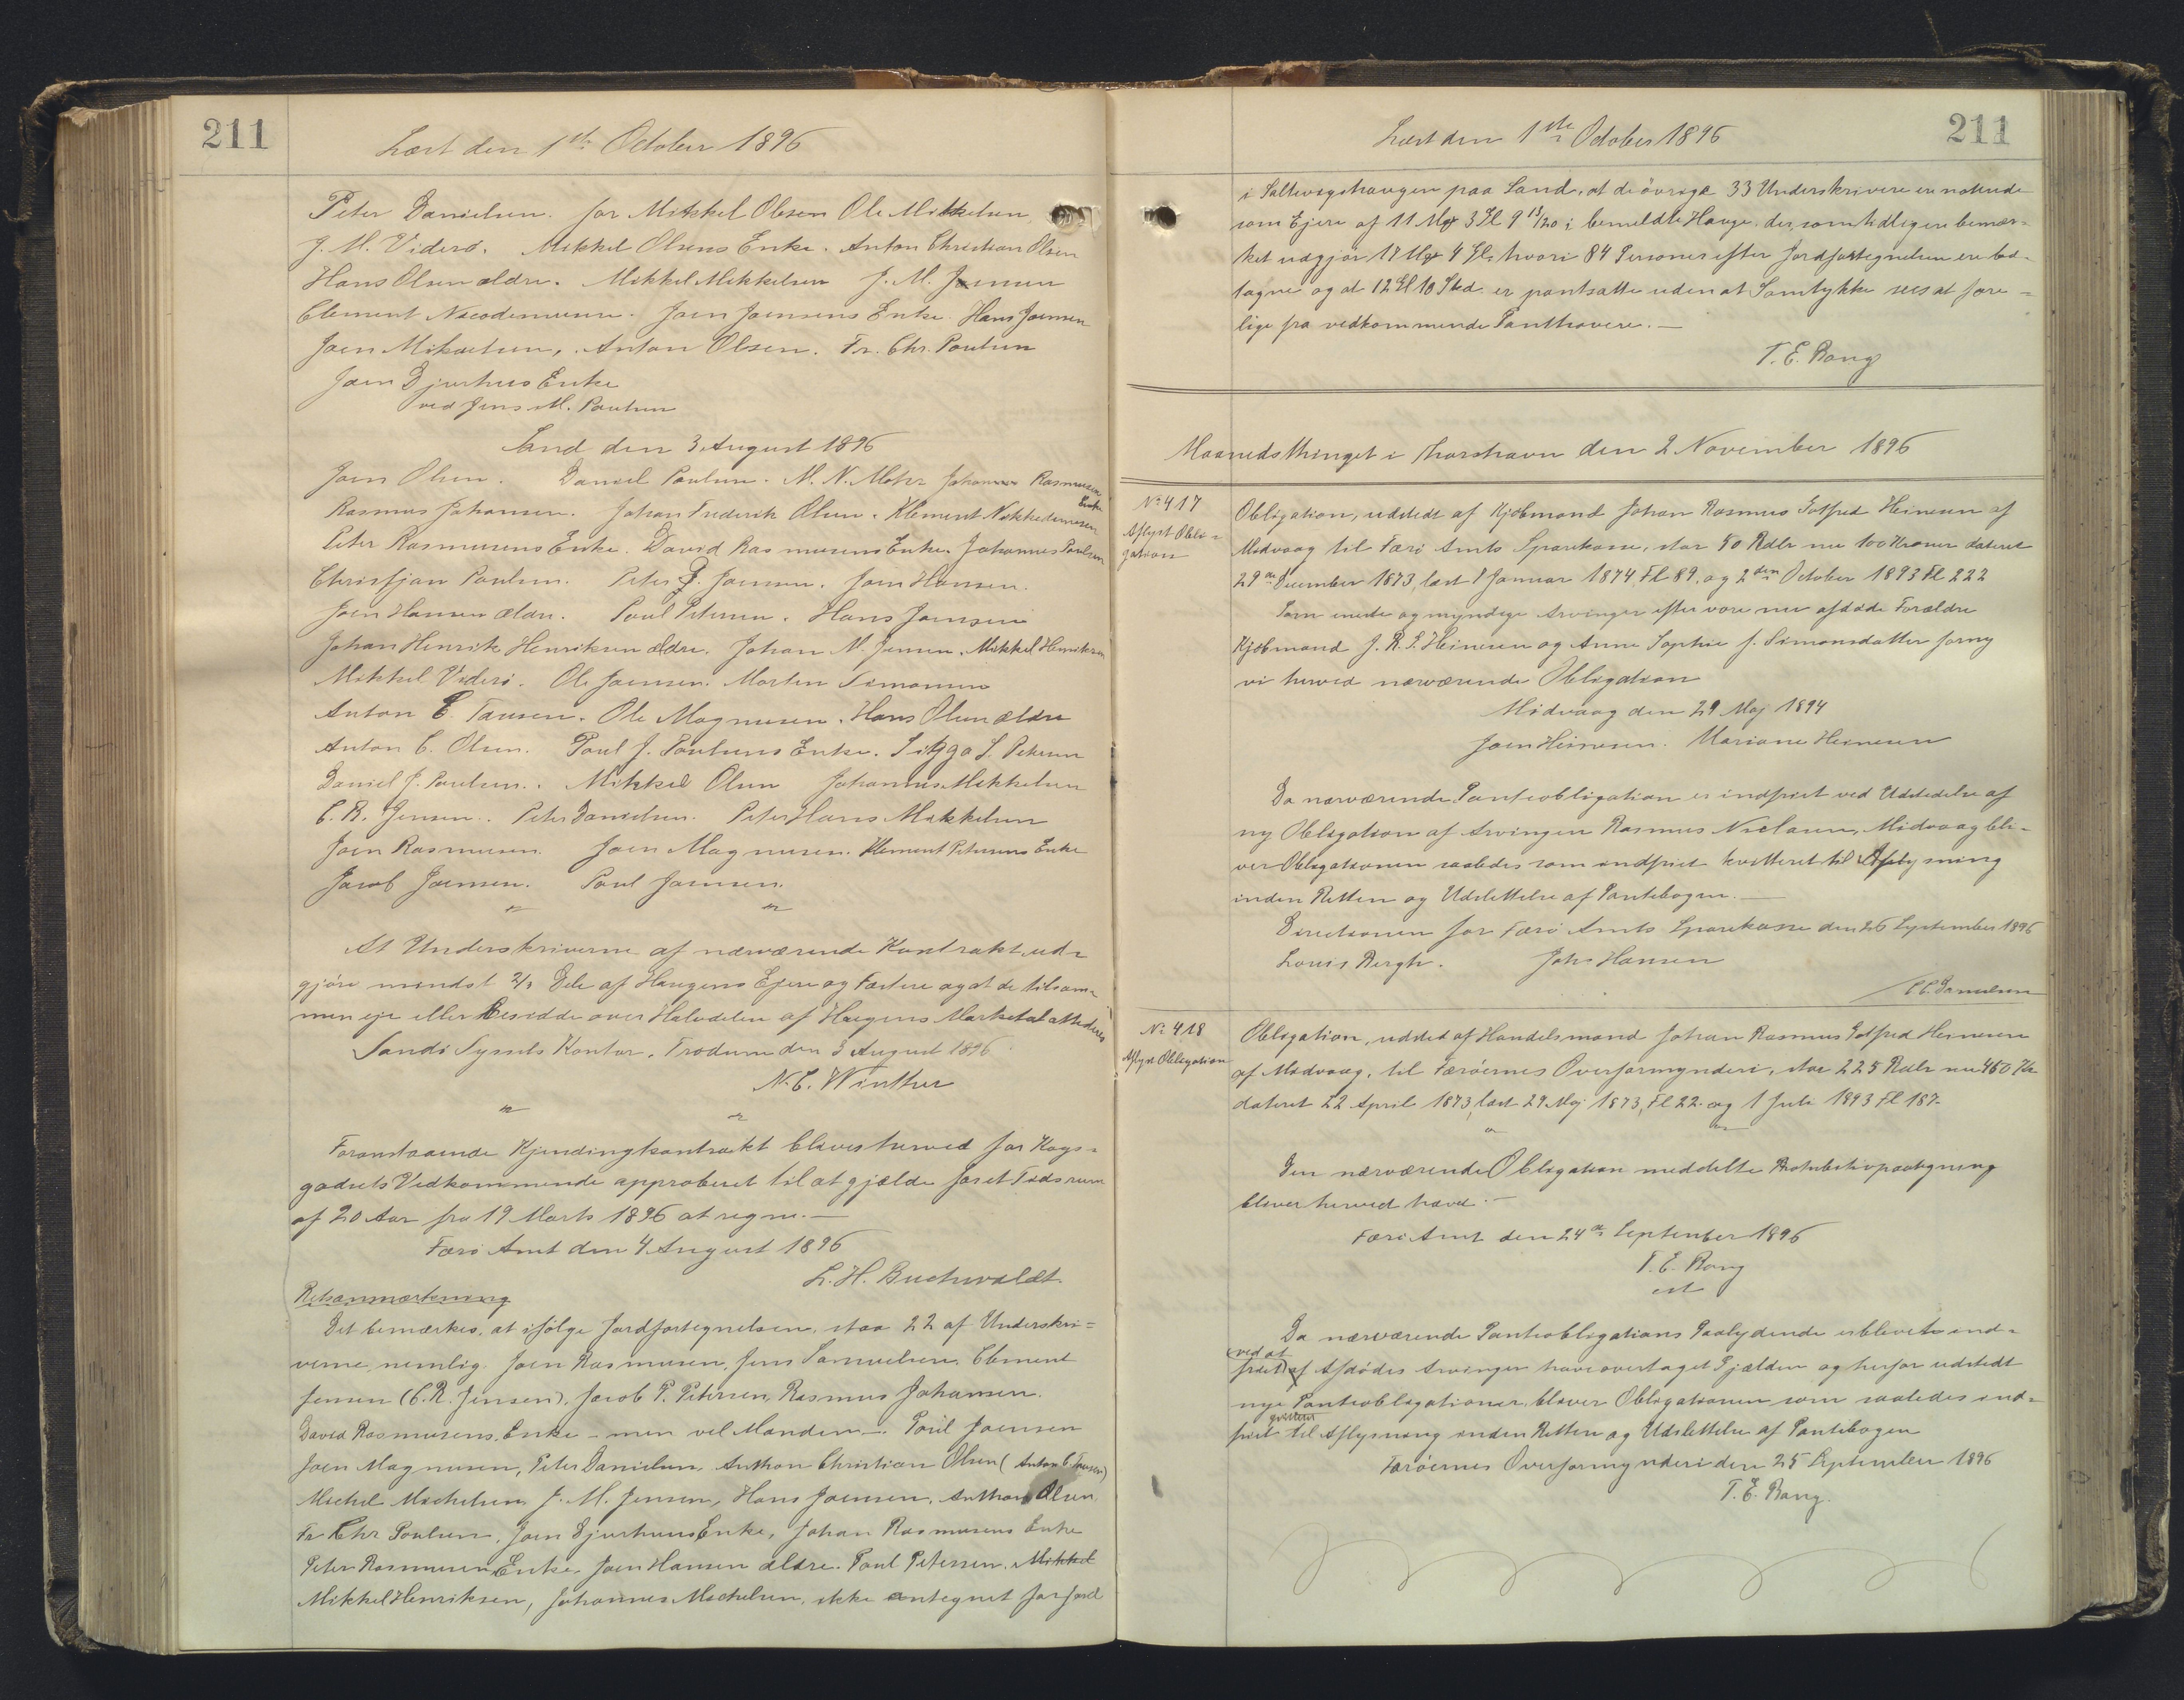 211
Læst den 1ste October 1896
Peter Danielsen. for Mikkel Olesen Ole Mikkelsen
J. M. Viderø. Mikkel Olsens Enke. Anton Christian Olsen
Hans Olsen ældre. Mikkel Mikkelsen J. M. Jensen
Clement Nicodemusen. Joen Joensens Enke. Hans Joensen
Joen Mikaelsen, Anton Olsen. Fr. Chr. Poulsen
Joen Djurhuus Enke
ved Jens M. Poulsen
Sand den 3 August 1896
Joen Olsen. Daniel Poulsen. M. N. Mohr Johannes Rasmussen Enke
Rasmus Johansen. Johan Frederik Olsen. Klement Nikkedemusen
Peter Rasmusens Enke. David Rasmusens Enke. Johannes Poulsen
Christjan Poulsen. Peter J. Joensen. Joen Hansen.
Joen Hansen ældre. Poul Petersen. Hans Joensen
Johan Henrik Henriksen ældre. Johan M. Jensen. Mikkel Henriksen
Mikkel Viderø. Ole Joensen. Morten Simonsen
Anton C. Tausen. Ole Magnusen. Hans Olsen ældre
Anton C. Olsen. Poul J. Poulsens Enke. Sitzgo S. Petersen
Daniel J. Poulsen. Mikkel Olsen Johannes Mikkelsen
C. R. Jensen. Peter Danielsen. Peter Hans Mikkelsen
Joen Rasmusen. Joen Magnusen. Klement Petersens Enke
Jacob Joensen. Poul Joensen.
At Underskriverne af nærværende Kontrakt ud=
gjøre mindst 2/3 Dele af Haugens Ejere og Fæstere og at de tilsam=
men eje eller besidde over Halvdelen af Haugens Marketal attesteres
Sandø Syssels Kontor, Trødum den 3 August 1896
N. C. Winther
Foranstaaende Kjendingkontrakt bliver herved for Kongs=
godsets Vedkommende approberet til at gjælde for et Tidsrum
af 20 Aar fra 19 Marts 1896 at regne.—
Færø Amt den 4 August 1896
L. H. Buchwaldt.
Retsanmærkning
Det bemærkes, at ifølge Jordfortegnelsen, staa 22 af Underskri=
verne nemlig. Joen Rasmusen, Jens Samuelsen. Clement
Jensen (C. R. Jensen), Jacob P. Petersen, Rasmus Johansen.
David Rasmusens Enke – men vel Manden –. Poul Joensen
Joen Magnusen, Peter Danielsen, Anthon Christian Olsen (Anton C. Tausen)
Michel Michelsen, J. M. Jensen, Hans Joensen, Anthon Olsen,
Fr Chr Poulsen, Joen Djurhuus Enke, Johan Rasmusens Enke
Peter Rasmusens Enke, Joen Hansen ældre. Poul Petersen. Mikkel
Mikkel Henriksen, Johannes Michelsen, ikke antegnet for Jord
211
Læst den 1ste October 1896
i Saltevigshaugen paa Sand, at de øvrige 33 Underskrivere ere noterede
som Ejere af 11 Mk 3 Gl 9 13/20 i bemeldte Hauge, der, som tidligere bemær=
ket udgjør 17 Mk 4 Gl, hvori 84 Personer efter Jordfortegnelsen ere lod=
tagne og at 12 Gl 10 Skd. er pantsatte uden at Samtykke sees at fore=
lige fra vedkommende Panthavere.—
T. E. Bang
Maanedsthinget i Thorshavn den 2 November 1896
No 417
Aflyst Obli=
gation
Obligation, udstedt af Kjøbmand Johan Rasmus Gotfred Heinesen af
Midvaag til Færø Amts Sparekasse, stor 50 Rdlr nu 100 Kroner dateret
29de December 1873, læst 1 Januar 1874 Fl 89. og 2den October 1893 Fl 222
Som eneste og myndige Arvinger efter vore nu afdøde Forældre
Kjøbmand J. R. G. Heinesen og Anne Sophie f. Simonsdatter forny
vi herved nærværende Obligation
Midvaag den 29 Maj 1894
Joen Heinesen. Mariane Heinesen
Da nærværende Panteobligation er indfriet ved Udstedelse af
ny Obligation af Arvingen Rasmus Niclasen, Midvaag bli=
ver Obligationen saaledes som indfriet kvitteret til Aflysning
inden Retten og Udslettelse af Pantebogen.—
Directionen for Færø Amts Sparekasse den 26 September 1896
Louis Bergh. Johs Hansen
C. C. Danielsen
No 418
Aflyst Obligation
Obligation, udsted af Handelsmand Johan Rasmus Gotfred Heinesen
af Midvaag, til Færøernes Overformynderi, stor 225 Rdlr nu 450 Kr
dateret 22 April 1873, læst 29 Maj 1873, Fl 22. og 1 Juli 1893 Fl 187.
Den nærværende Obligation meddelte Prohibitivpaategning
bliver herved hævet.—
Færø Amt den 24de September 1896
T. E. Bang
cst
Da nærværende Panteobligations Paalydende er blevet ind=
friet ved at Afdødes Arvinger have overtaget Gjælden og herfor udstedt
nye Panteobligationer, bliver Obligationen som saaledes ind=
friet qvitteret til Aflysning inden Retten og Udslettelse af Pantebogen
Færøernes Overformynderi den 25 September 1896
T. E. Bang.